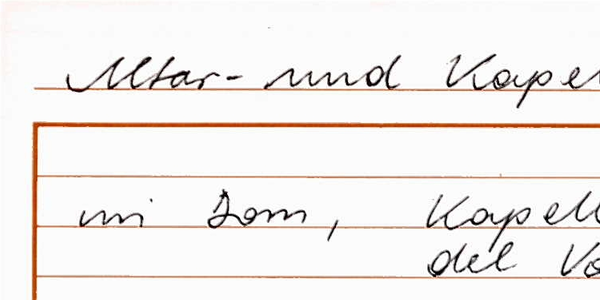 Altar- und Kapel
im Dom, Kapell
del Vo